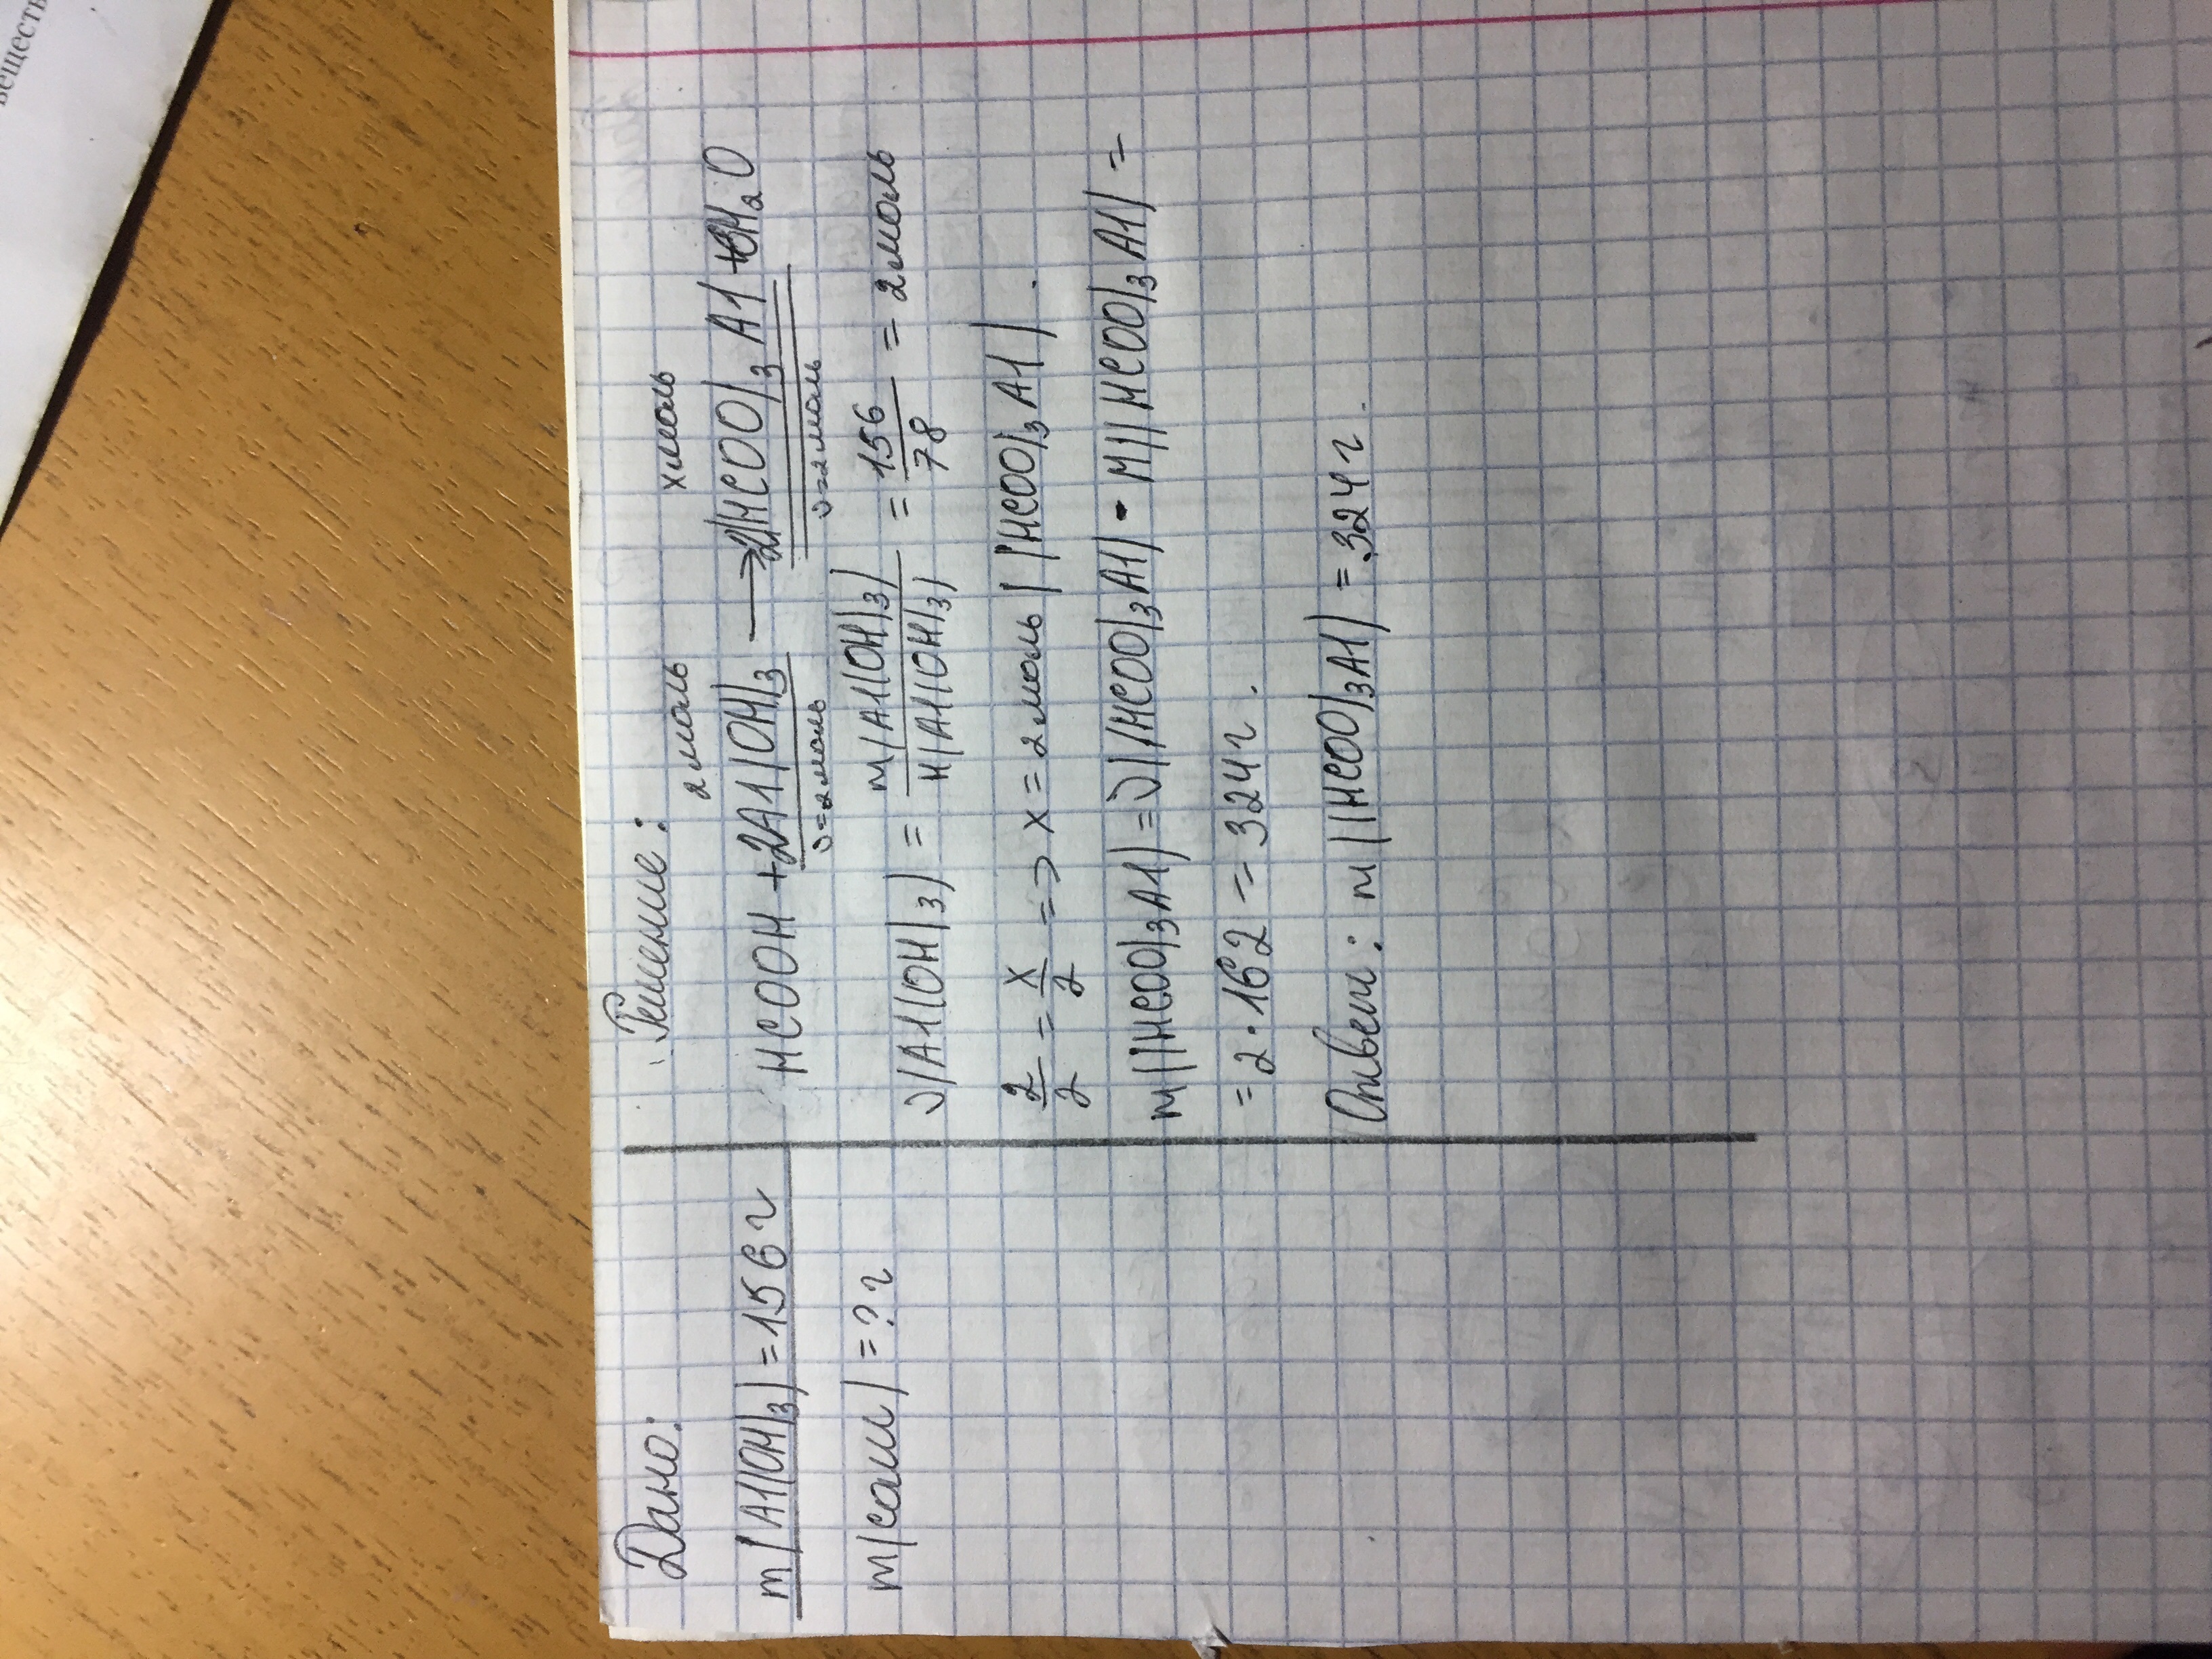 веществ
Дано:
m(Al(OH)₃)=156г
m(соли)=?г
Решение:
2моль хмоль
HCOOH+2Al(OH)₃→2(HCOO)₃Al+3H₂O
ν=2моль ν=2моль
ν(Al(OH)₃)=m(Al(OH)₃)/M(Al(OH)₃)=156/78=2моль
2/2=x/2=>x=2моль((HCOO)₃Al).
m((HCOO)₃Al)=ν((HCOO)₃Al)·M((HCOO)₃Al)=
=2·162=324г.
Ответ: m((HCOO)₃Al)=324г.